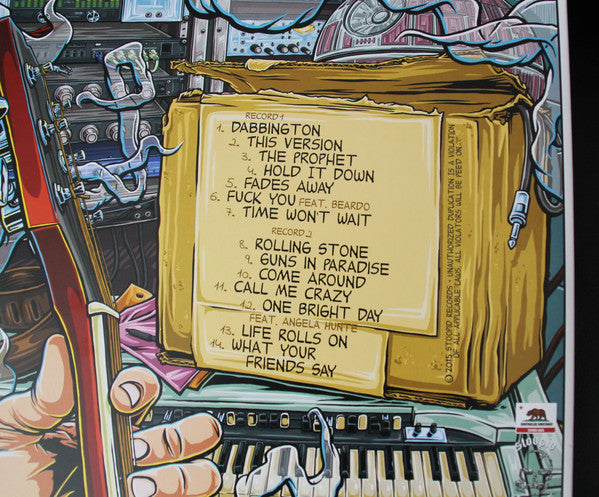 RECORD 1
1. DABBINGTON
2. THIS VERSION
3. THE PROPHET
4. HOLD IT DOWN
5. FADES AWAY
6. FUCK YOU FEAT. BEARDO
7. TIME WON'T WAIT
RECORD 2
8. ROLLING STONE
9. GUNS IN PARADISE
10. COME AROUND
11. CALL ME CRAZY
12. ONE BRIGHT DAY
FEAT. ANGELA HUNTE
13. LIFE ROLLS ON
14. WHAT YOUR
FRIENDS SAY
© 2015 STOOPID RECORDS - UNAUTHORIZED DUPLICATION IS A VIOLATION
OF ALL APPLICABLE LAWS, ALL VIOLATORS WILL BE PEE'D ON...